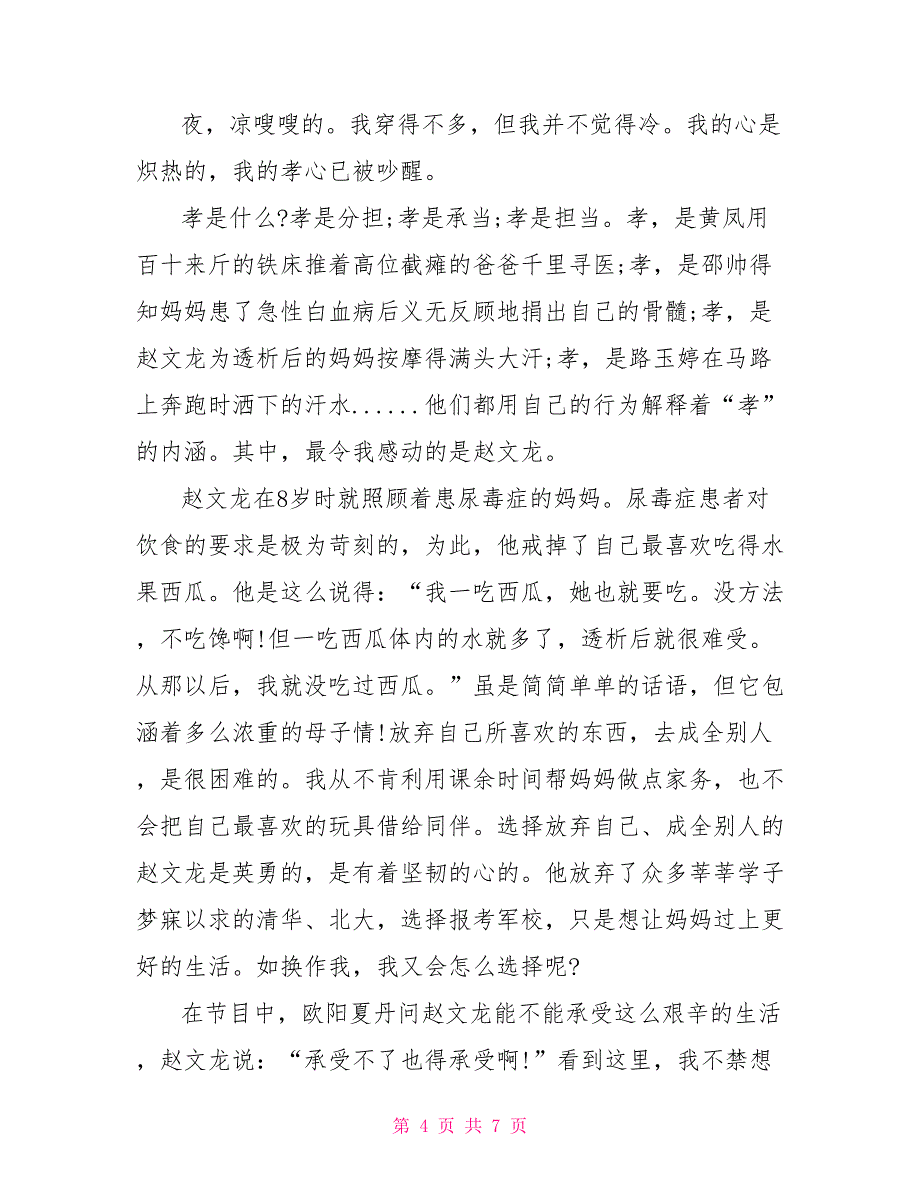 夜，凉嗖嗖的。我穿得不多，但我并不觉得冷。我的心是
炽热的，我的孝心已被吵醒。
孝是什么?孝是分担;孝是承当;孝是担当。孝，是黄凤用
百十来斤的铁床推着高位截瘫的爸爸千里寻医;孝，是邵帅得
知妈妈患了急性白血病后义无反顾地捐出自己的骨髓;孝，是
赵文龙为透析后的妈妈按摩得满头大汗;孝，是路玉婷在马路
上奔跑时洒下的汗水......他们都用自己的行为解释着“孝”
的内涵。其中，最令我感动的是赵文龙。
赵文龙在8岁时就照顾着患尿毒症的妈妈。尿毒症患者对
饮食的要求是极为苛刻的，为此，他戒掉了自己最喜欢吃得水
果西瓜。他是这么说得：“我一吃西瓜，她也就要吃。没方法
，不吃馋啊!但一吃西瓜体内的水就多了，透析后就很难受。
从那以后，我就没吃过西瓜。”虽是简简单单的话语，但它包
涵着多么浓重的母子情!放弃自己所喜欢的东西，去成全别人
，是很困难的。我从不肯利用课余时间帮妈妈做点家务，也不
会把自己最喜欢的玩具借给同伴。选择放弃自己、成全别人的
赵文龙是英勇的，是有着坚韧的心的。他放弃了众多莘莘学子
梦寐以求的清华、北大，选择报考军校，只是想让妈妈过上更
好的生活。如换作我，我又会怎么选择呢?
在节目中，欧阳夏丹问赵文龙能不能承受这么艰辛的生活
，赵文龙说：“承受不了也得承受啊!”看到这里，我不禁想
第 4 页 共 7 页